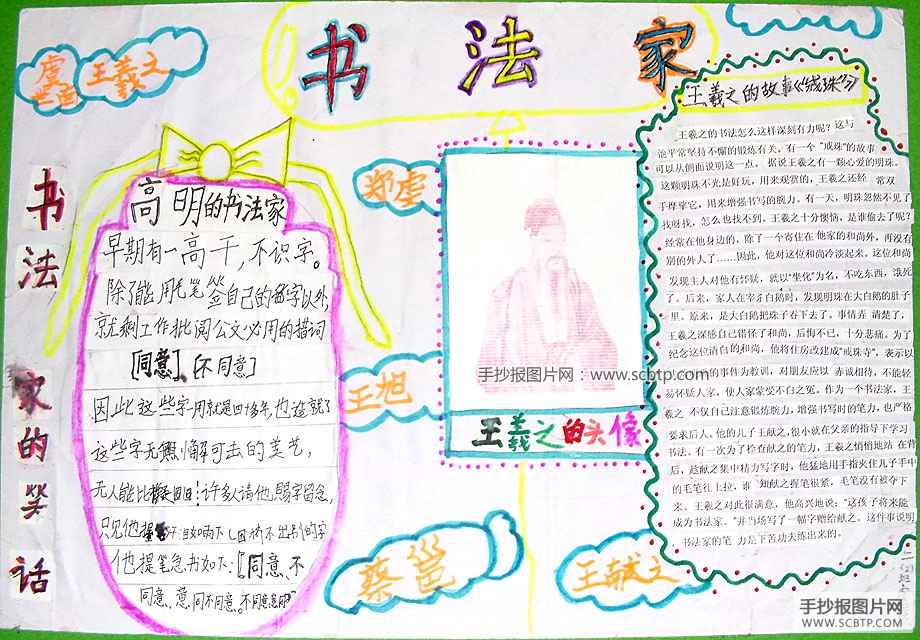 书法家
虞世南
王羲之
书法家的笑话
高明的书法家
早期有一高干,不识字。
除了能用毛笔签自己的名字以外,
就剩工作批阅公文必用的措词
[同意]、[不同意]
因此这些字用就是四十多年,也造就了
这些字无懈可击的美艺,
无人能比
许多人请他赐字留念,
只见他提
他提笔急书如下:[同意、不
同意、意、同不同意。不同意
郑虔
王旭
蔡邕
王献之
手抄报图片网:www.scbtp.com
王羲之的头像
王羲之的故事《戒珠》
王羲之的书法怎么这样深刻有力呢?这与
他平常坚持不懈的锻炼有关。有一个“戒珠”的故事
可以从侧面说明这一点。据说王羲之有一颗心爱的明珠。
这颗明珠不光是好玩,用来观赏的,王羲之还经 常双
手摩挲它,用来增强书写的腕力。有一天,明珠忽然不见了
找呀找,怎么也找不到。王羲之十分懊恼,是谁偷去了呢?
经常在他身边的,除了一个寄住在他家的和尚外,再没有
别的外人了……因此,他对这位和尚冷淡起来。这位和尚
发现主人对他有怀疑,就以“坐化”为名,不吃东西,饿死
了。后来,家人在宰了白鹅时,发现明珠在大白鹅的肚子
里。原来,是大白鹅把珠子吞下去了。事情弄 清楚了,
王羲之深感自己错怪了和尚,后悔不已,十分悲痛。为了
纪念这位清白的和尚,他将住房改建成“戒珠寺”,表示以
的事件为教训,对朋友应以 赤诚相待,不能轻
易怀疑人家,使人家蒙受不白之冤。作为一个书法家,王
羲之 不仅自己注意锻炼腕力,增强书写时的笔力,也严格
要求后人。他的儿子王献之,很小就在父亲的指导下学习
书法。有一次为了检查献之的笔力,王羲之悄悄地站 在背
后,趁献之集中精力写字时,他猛地用手指夹住儿子手中
的毛笔往上拉,谁 知献之握笔很紧,毛笔没有被夺下
来。王羲之对此很满意,他高兴地说:“这孩子将来能
成为书法家。”并当场写了一幅字赠给献之。这件事说明
书法家的笔 力是下苦功夫练出来的。
手抄报图片网
WWW.SCBTP.COM